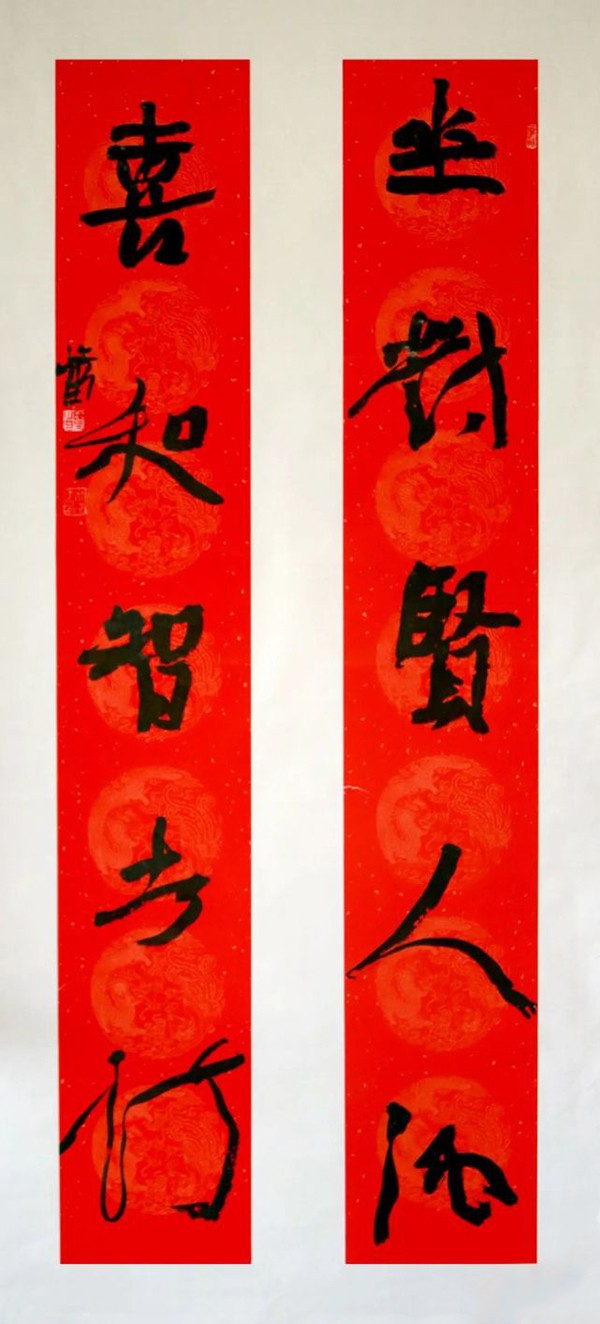 坐對賢人酒
喜和智者詞